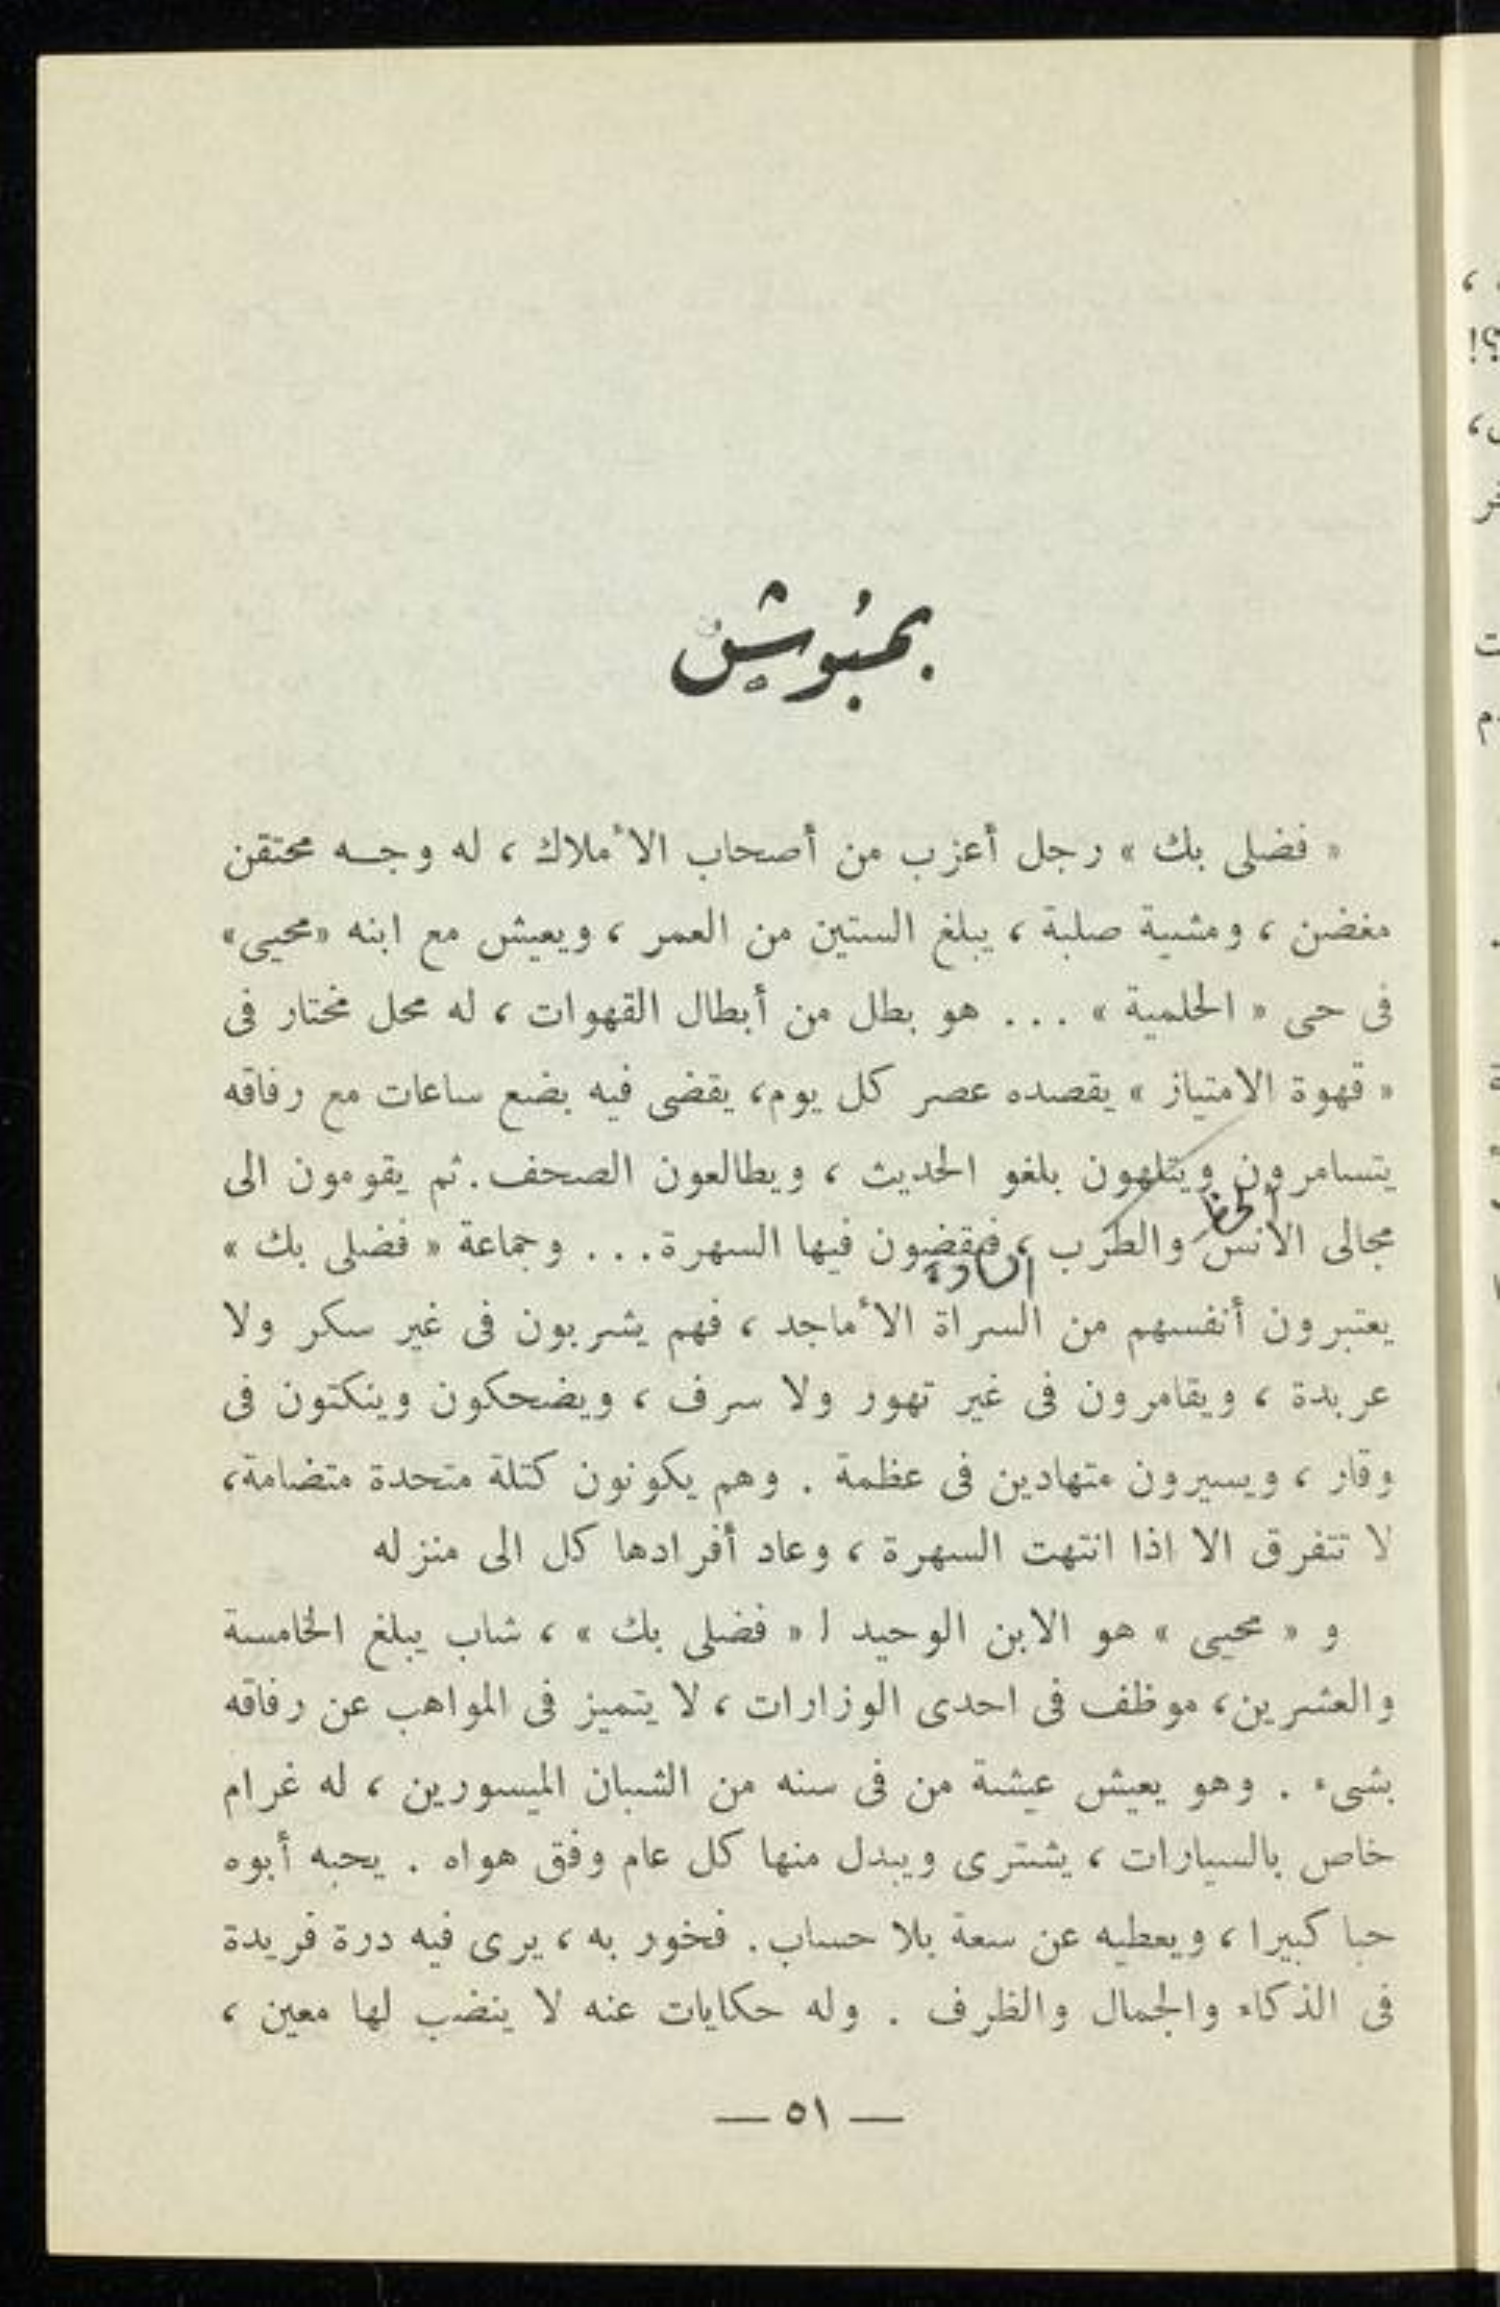 بمبوش
« فضلى بك » رجل أعزب من أصحاب الأملاك ، له وجـه محتقن
مغضن ، ومشية صلبة ، يبلغ الستين من العمر ، ويعيش مع ابنه «محيى»
فى حى « الحلمية » ... هو بطل من أبطال القهوات ، له محل مختار فى
« قهوة الامتياز » يقصده عصر كل يوم، يقضى فيه بضع ساعات مع رفاقه
يتسامرون ويتلهون بلغو الحديث ، ويطالعون الصحف. ثم يقومون الى
مجالى الأنس والطرب ، فيقضون فيها السهرة... وجماعة « فضلى بك »
يعتبرون أنفسهم من السراة الأماجد ، فهم يشربون فى غير سكر ولا
عربدة ، ويقامرون فى غير تهور ولا سرف ، ويضحكون وينكتون فى
وقار ، ويسيرون متهادين فى عظمة . وهم يكونون كتلة متحدة متضامة،
لا تتفرق الا اذا انتهت السهرة ، وعاد أفرادها كل الى منزله
و « محيى » هو الابن الوحيد لـ « فضلى بك » ، شاب يبلغ الخامسة
والعشرين، موظف فى احدى الوزارات ، لا يتميز فى المواهب عن رفاقه
بشىء . وهو يعيش عيشة من فى سنه من الشبان الميسورين ، له غرام
خاص بالسيارات ، يشترى ويبدل منها كل عام وفق هواه . يحبه أبوه
حبا كبيرا ، ويعطيه عن سعة بلا حساب. فخور به ، يرى فيه درة فريدة
فى الذكاء والجمال والظرف . وله حكايات عنه لا ينضب لها معين ،
— ٥١ —